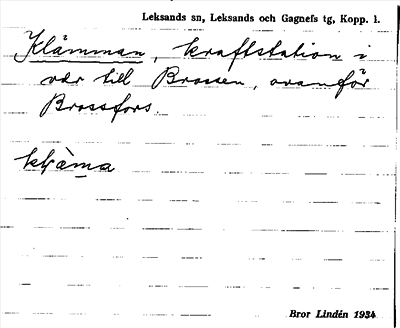 Leksands sn, Leksands och Gagnefs tg, Kopp. l.
Klämman, kraftstation i
vår till Brossen, ovanför
Brossfors.
Bror Lindén 1934